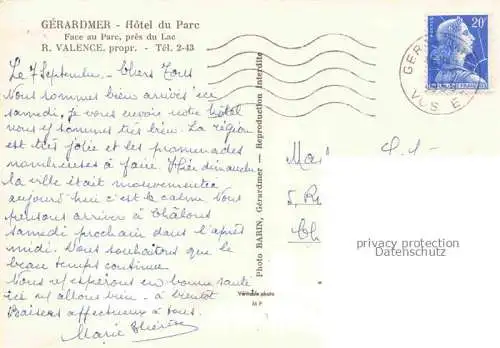 GÉRARDMER - Hôtel du Parc
Face au Parc, près du Lac
R. VALENCE, propr. - Tél. 2-43
Le 7 Septembre - Chers Tous
Nous sommes bien arrivés ici
samedi, je vous envoie notre hôtel
nous y sommes très bien. La région
est très jolie et les promenades
nombreuses à faire. Hier dimanche
la ville était mouvementée
aujourd'hui c'est le calme. Nous
pensons arriver à Châlons
samedi prochain dans l'après
midi. Nous souhaitons que le
beau temps continue
Nous espérons en bonne santé
ici allons bien - à bientôt
Baisers affectueux à tous.
Marie Thérèse
Photo BARIN, Gérardmer - Reproduction Interdite
Véritable photo
20F
GER
VOSGES
privacy protection
Datenschutz